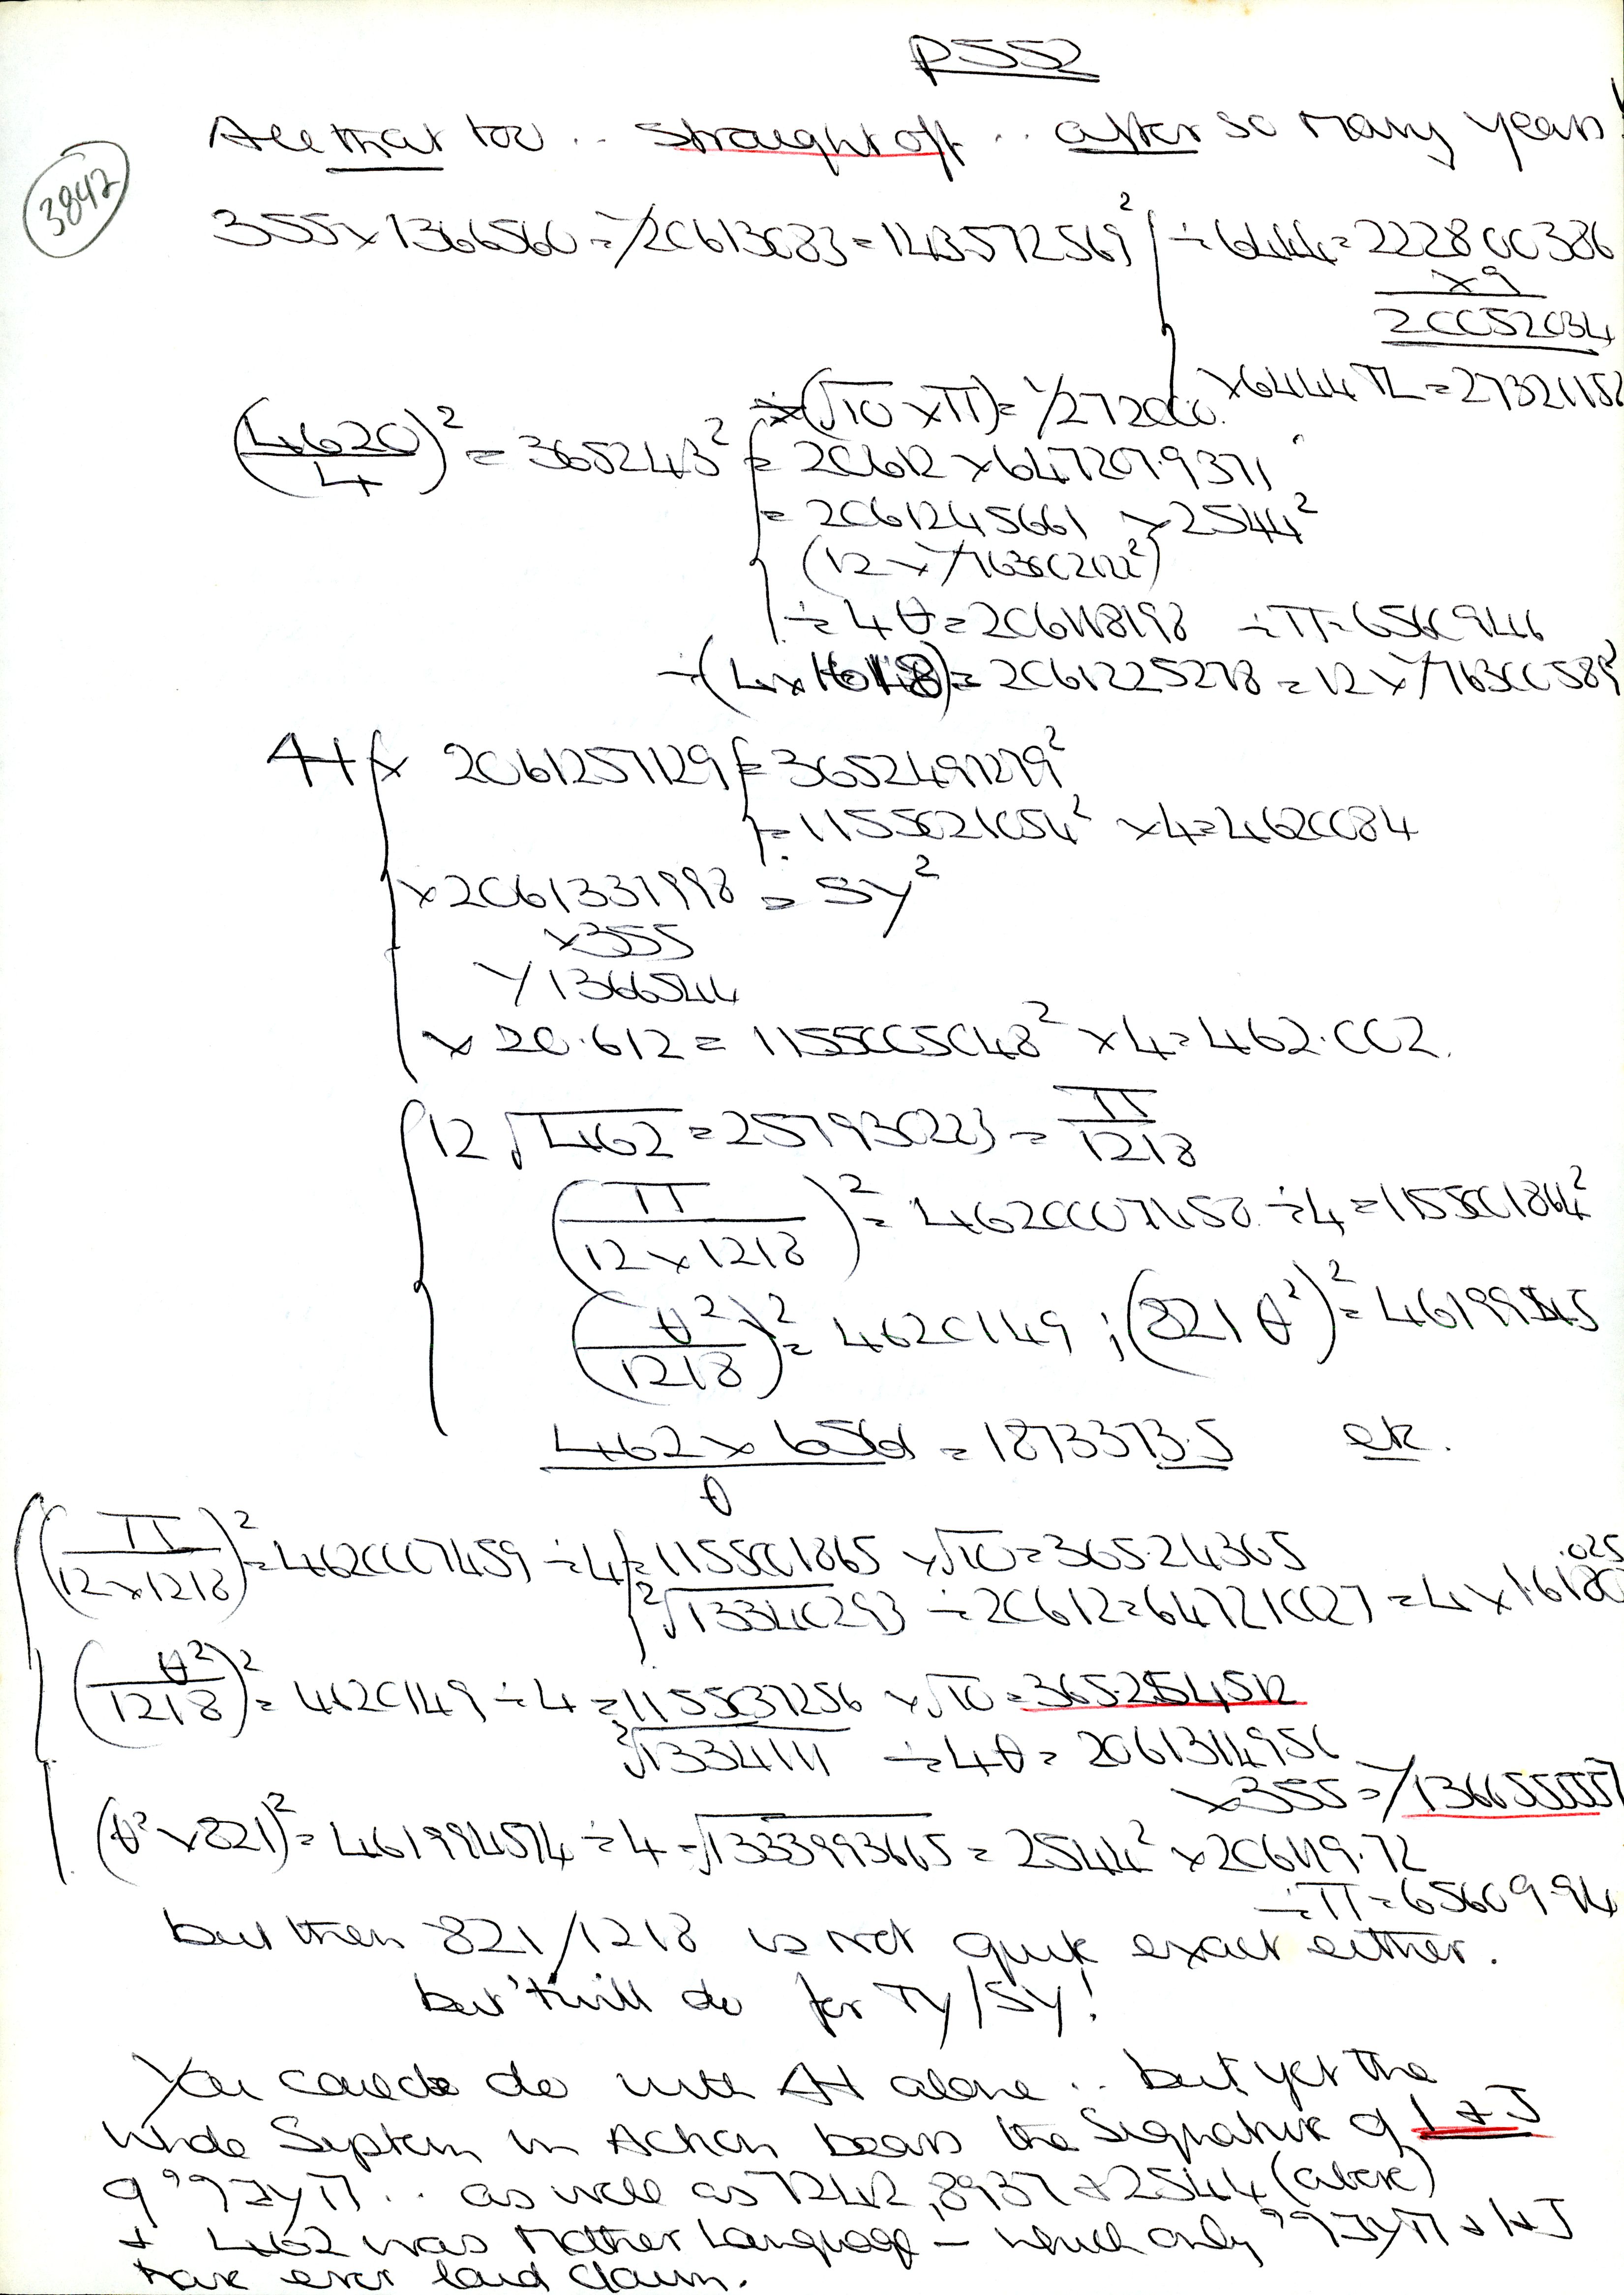 P552
All that too .. straight off .. after so many years!
3842
355 × 1366560 = 1/20613083 = 143572569² ÷ 6444 = 222800386
×9
20052034
×6444π = 27321152
÷(√10 × π) = 1/272000.
(4620/4)² = 365243² = 20612 × 647207.9371
= 2061245661 × 2544²
(12 × 1/763002122²)
÷ 4θ = 206118198 ÷ π = 6560946
÷(4 × 1618) = 2061225278 = 12 × 1/76300589²
× 2061257129 = 3652497279²
= 1155021054² × 4 = 4620084
× 2061331998 = SY²
×355
1/1366544
× 20.612 = 1155005048² × 4 = 462.002.
12√462 = 257930223 = π/1218
(π/(12×1218))² = 4620007458 ÷ 4 = 115501864²
(θ²/1218)² = 4620149 ; (821θ²)² = 46199545
462 × 6561/θ = 1873373.5 etc.
(π/(12×1218))² = 4620007459 ÷ 4 = 115501865 × √10 = 365.24365
.025
²√13340293 ÷ 20612 = 647210027 = 4 × 1.6180
(θ²/1218)² = 4620149 ÷ 4 = 1155037256 × √10 = 365.254512
²√1334111 ÷ 4θ = 2061314956
×355 = 1/136655557
(θ² × 821)² = 461994574 ÷ 4 = √1333993665 = 2544² × 206119.72
÷ π = 65609.94
but then 821/1218 is not quite exact either.
but 'twill do for TY/SY!
You could do with alone .. but yet the
whole System in Action bears the Signature of I & J
of .. as well as 7242, 8937 & 2544 (above)
+ 462 was Mother Language – which only & I & J
have ever laid claim.